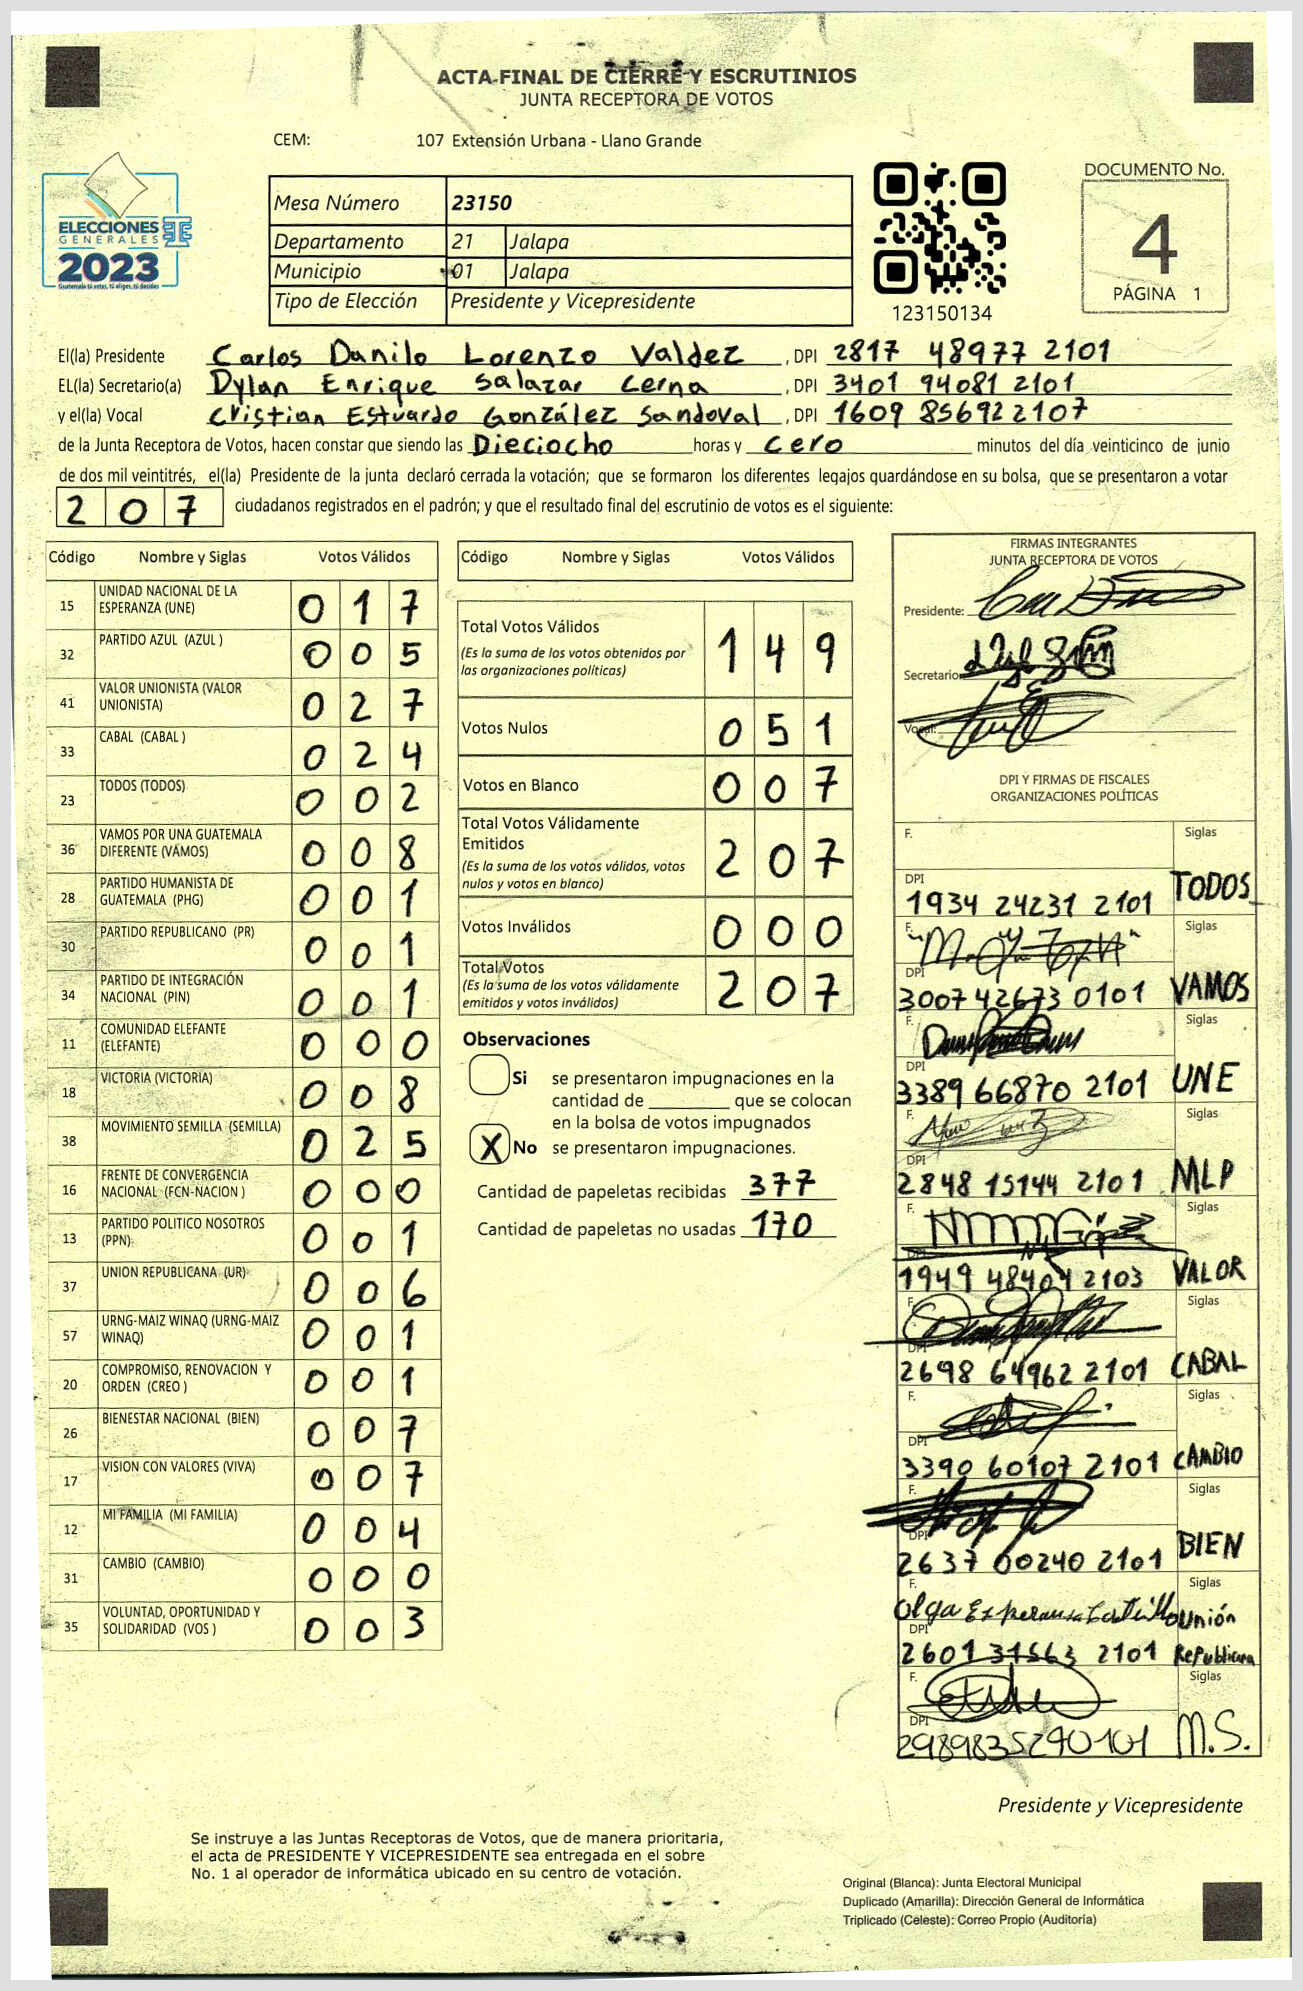 ACTA FINAL DE CIERRE Y ESCRUTINIOS
JUNTA RECEPTORA DE VOTOS
CEM: 107 Extensión Urbana - Llano Grande
ELECCIONES
GENERALES
2023
Guatemala tú votas, tú eliges, tú decides
Mesa Número 23150
Departamento 21 Jalapa
Municipio 01 Jalapa
Tipo de Elección Presidente y Vicepresidente
123150134
DOCUMENTO No.
4
PÁGINA 1
El(la) Presidente Carlos Danilo Lorenzo Valdez, DPI 2817 48977 2101
EL(la) Secretario(a) Dylan Enrique Salazar Cerna, DPI 3401 94081 2101
y el(la) Vocal Cristian Estuardo González Sandoval, DPI 1609 85692 2107
de la Junta Receptora de Votos, hacen constar que siendo las Dieciocho horas y cero minutos del día veinticinco de junio
de dos mil veintitrés, el(la) Presidente de la junta declaró cerrada la votación; que se formaron los diferentes legajos guardándose en su bolsa, que se presentaron a votar
207 ciudadanos registrados en el padrón; y que el resultado final del escrutinio de votos es el siguiente:
Código Nombre y Siglas Votos Válidos
15 UNIDAD NACIONAL DE LA ESPERANZA (UNE) 017
32 PARTIDO AZUL (AZUL ) 005
41 VALOR UNIONISTA (VALOR UNIONISTA) 027
33 CABAL (CABAL ) 024
23 TODOS (TODOS) 002
36 VAMOS POR UNA GUATEMALA DIFERENTE (VAMOS) 008
28 PARTIDO HUMANISTA DE GUATEMALA (PHG) 001
30 PARTIDO REPUBLICANO (PR) 001
34 PARTIDO DE INTEGRACIÓN NACIONAL (PIN) 001
11 COMUNIDAD ELEFANTE (ELEFANTE) 000
18 VICTORIA (VICTORIA) 008
38 MOVIMIENTO SEMILLA (SEMILLA) 025
16 FRENTE DE CONVERGENCIA NACIONAL (FCN-NACION ) 000
13 PARTIDO POLITICO NOSOTROS (PPN) 001
37 UNION REPUBLICANA (UR) 006
57 URNG-MAIZ WINAQ (URNG-MAIZ WINAQ) 001
20 COMPROMISO, RENOVACION Y ORDEN (CREO ) 001
26 BIENESTAR NACIONAL (BIEN) 007
17 VISION CON VALORES (VIVA) 007
12 MI FAMILIA (MI FAMILIA) 004
31 CAMBIO (CAMBIO) 000
35 VOLUNTAD, OPORTUNIDAD Y SOLIDARIDAD (VOS ) 003
Código Nombre y Siglas Votos Válidos
Total Votos Válidos 149
(Es la suma de los votos obtenidos por
las organizaciones políticas)
Votos Nulos 051
Votos en Blanco 007
Total Votos Válidamente
Emitidos 207
(Es la suma de los votos válidos, votos
nulos y votos en blanco)
Votos Inválidos 000
Total Votos 207
(Es la suma de los votos válidamente
emitidos y votos inválidos)
Observaciones
Si se presentaron impugnaciones en la
cantidad de ________ que se colocan
en la bolsa de votos impugnados
X No se presentaron impugnaciones.
Cantidad de papeletas recibidas 377
Cantidad de papeletas no usadas 170
FIRMAS INTEGRANTES
JUNTA RECEPTORA DE VOTOS
Presidente:
Secretario
Vocal:
DPI Y FIRMAS DE FISCALES
ORGANIZACIONES POLÍTICAS
F. Siglas
DPI 1934 24231 2101 TODOS
F. Siglas
DPI 3007 42673 0101 VAMOS
F. Siglas
DPI 3389 66870 2101 UNE
F. Siglas
DPI 2848 15144 2101 MLP
F. Siglas
DPI 1949 48404 2103 VALOR
F. Siglas
DPI 2698 64962 2101 CABAL
F. Siglas
DPI 3390 60107 2101 CAMBIO
F. Siglas
DPI 2637 00240 2101 BIEN
F. Olga Esperanza Siglas
DPI 2601 31563 2101 Unión Republicana
F. Siglas
DPI 2989835290101 M.S.
Presidente y Vicepresidente
Se instruye a las Juntas Receptoras de Votos, que de manera prioritaria,
el acta de PRESIDENTE Y VICEPRESIDENTE sea entregada en el sobre
No. 1 al operador de informática ubicado en su centro de votación.
Original (Blanca): Junta Electoral Municipal
Duplicado (Amarilla): Dirección General de Informática
Triplicado (Celeste): Correo Propio (Auditoría)